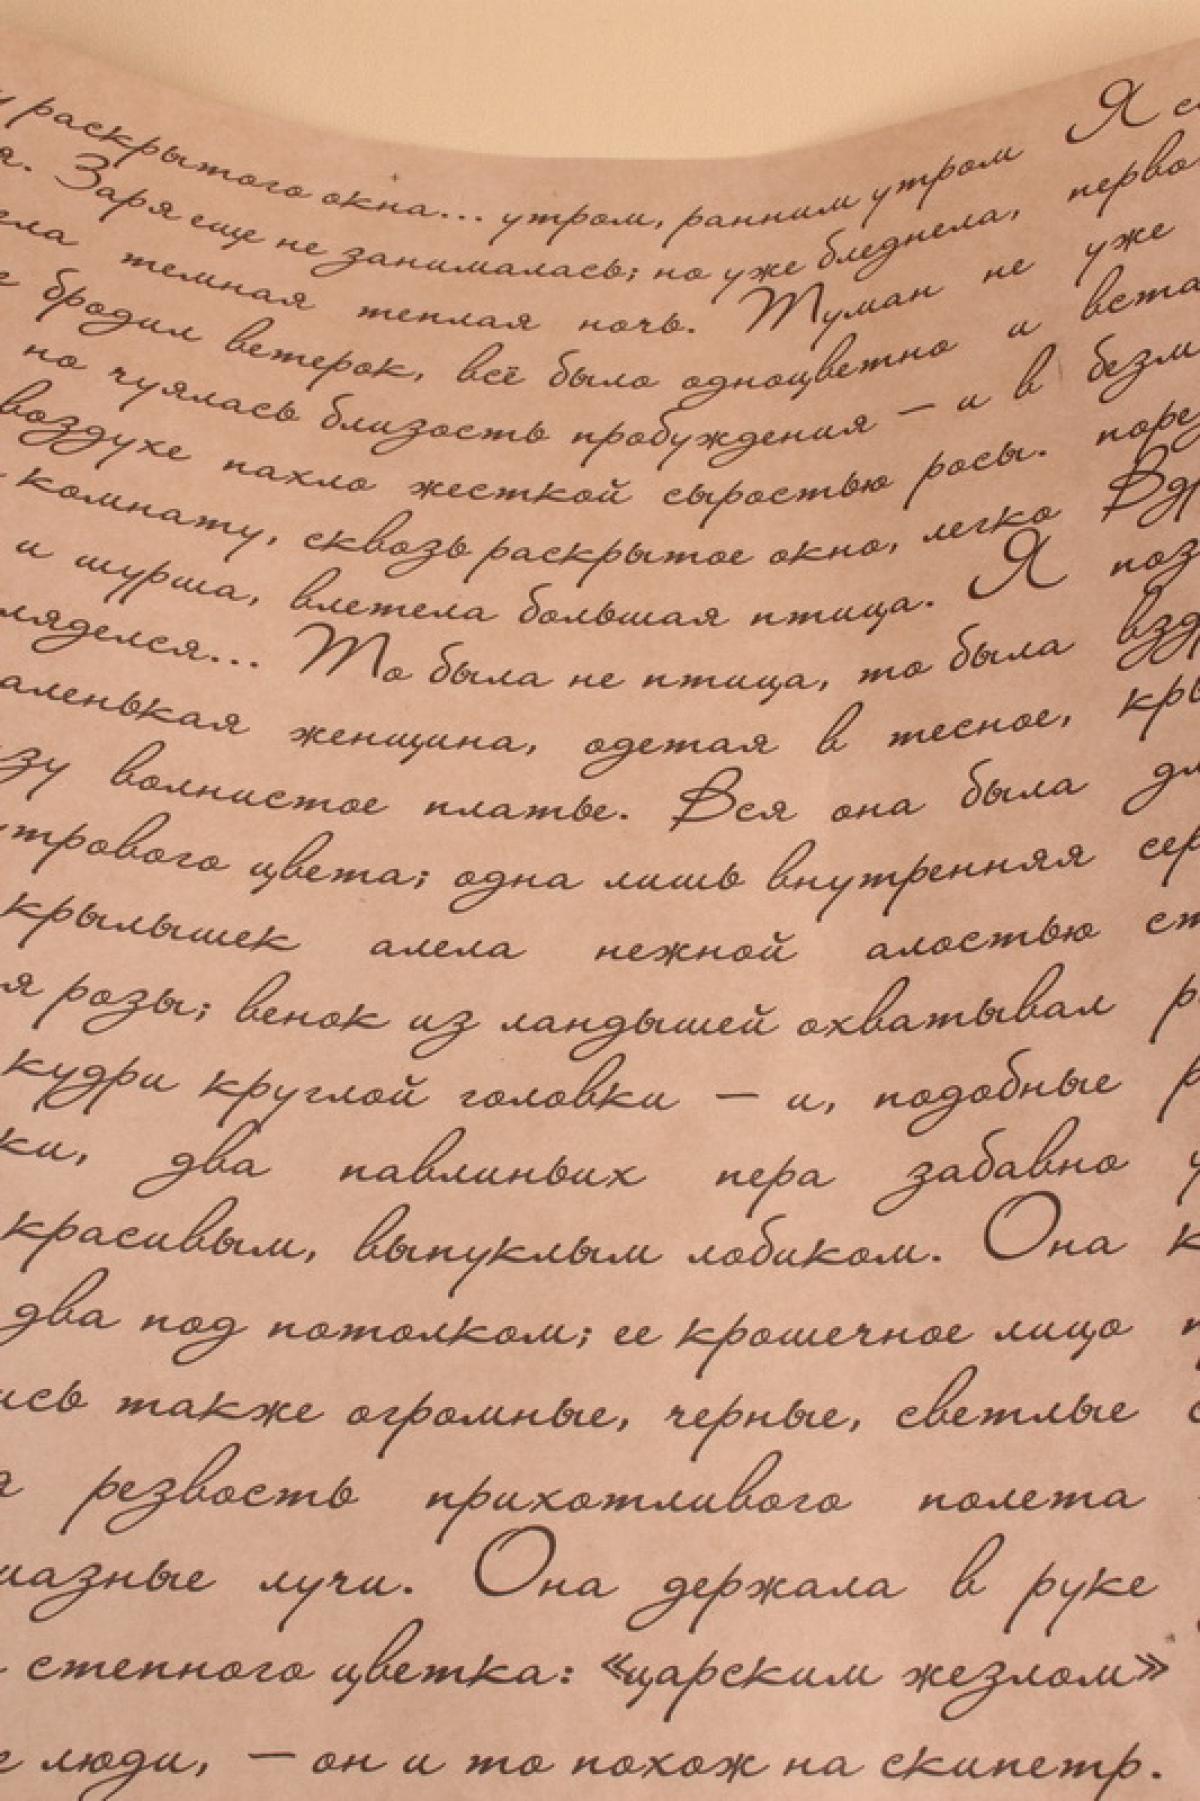 раскрытого окна... утром, ранним утром Я
я. Заря еще не занималась; но уже бледнела, перво
ела темная теплая ночь. Туман не уже
бродил ветерок, всё было одноцветно и вста
но чуялась близость пробуждения — и в безм
воздухе пахло жесткой сыростью росы. поре
комнату, сквозь раскрытое окно, легко Вдр
и шурша, влетела большая птица. Я поз
ляделся... То была не птица, то была взд
аленькая женщина, одетая в тесное, кры
зу волнистое платье. Вся она была дл
трового цвета; одна лишь внутренняя сер
крылышек алела нежной алостью ст
я розы; венок из ландышей охватывал р
кудри круглой головки — и, подобные р
ки, два павлиньих пера забавно у
красивым, выпуклым лобиком. Она к
два под потолком; ее крошечное лицо
ись также огромные, черные, светлые с
я резвость прихотливого полета
мазные лучи. Она держала в руке
степного цветка: «царским жезлом»
е люди, — он и то похож на скипетр.